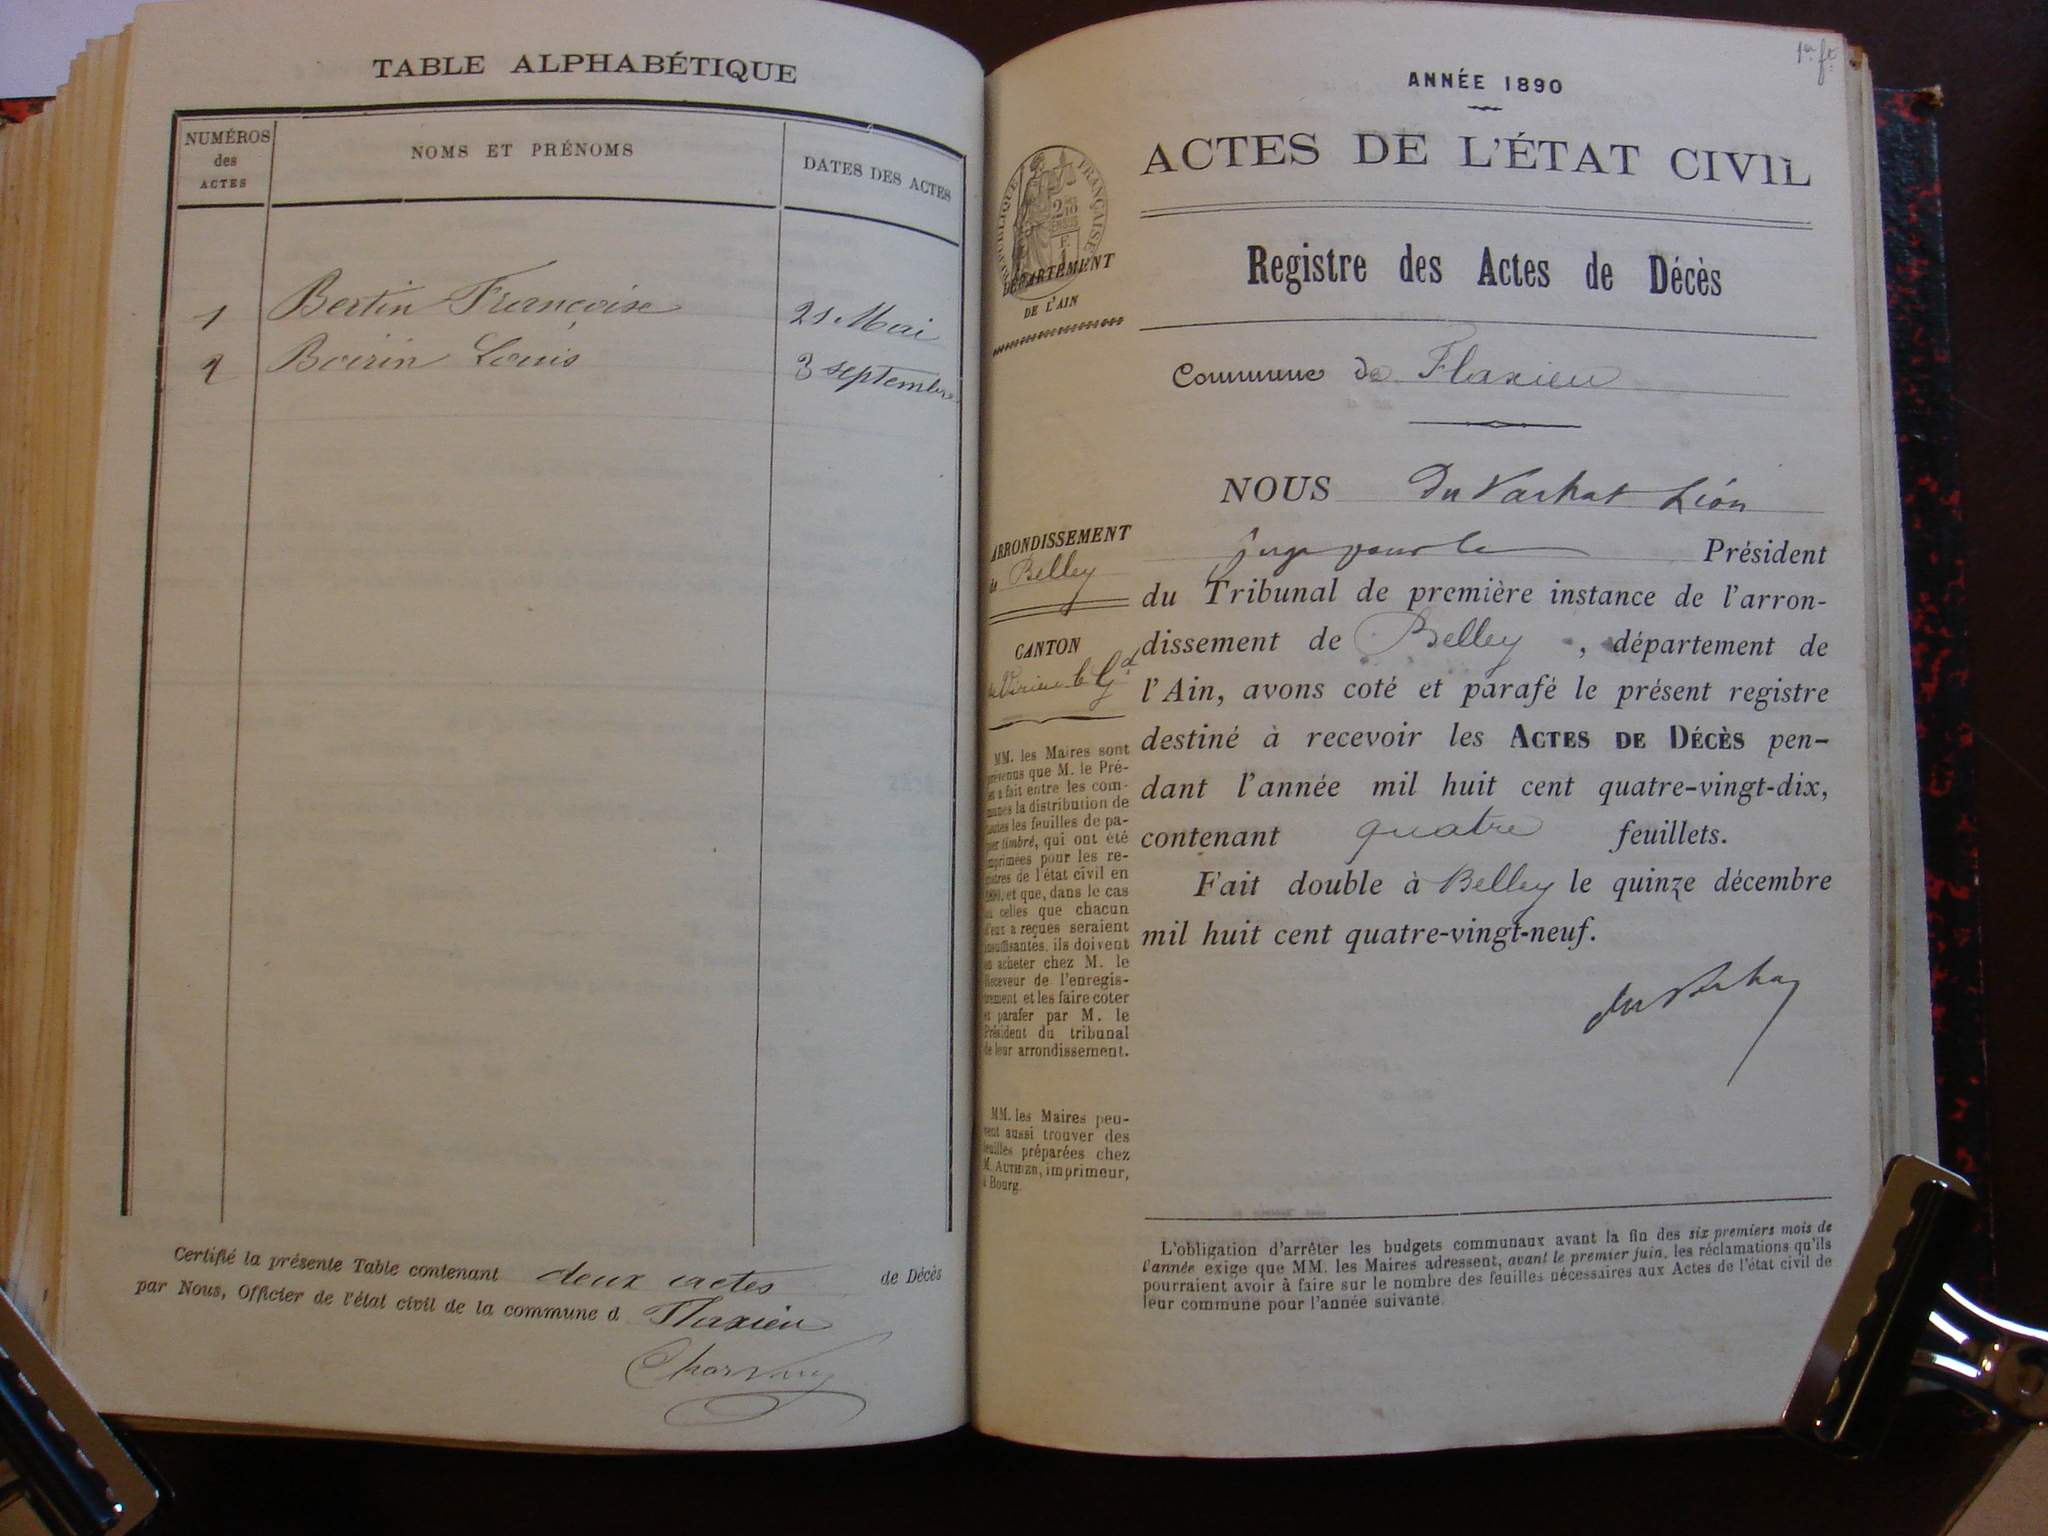 TABLE ALPHABÉTIQUE
NUMÉROS
des
ACTES
NOMS ET PRÉNOMS
DATES DES ACTES
1 Bertin Françoise 21 Mai
2 Louis 3 septembre
Certifié la présente Table contenant deux actes de Décès
par Nous, Officier de l'état civil de la commune d Flaxieu
1er ft
ANNÉE 1890
ACTES DE L'ÉTAT CIVIL
RÉPUBLIQUE FRANÇAISE
DÉPARTEMENT
DE L'AIN
Registre des Actes de Décès
Commune de Flaxieu
NOUS Léon
juge pour le Président
du Tribunal de première instance de l'arron-
dissement de Belley, département de
l'Ain, avons coté et parafé le présent registre
destiné à recevoir les ACTES DE DÉCÈS pen-
dant l'année mil huit cent quatre-vingt-dix,
contenant quatre feuillets.
Fait double à Belley le quinze décembre
mil huit cent quatre-vingt-neuf.
ARRONDISSEMENT
de Belley
CANTON
de Virieu le Gd
MM. les Maires sont
prévenus que M. le Pré-
fet a fait entre les com-
munes la distribution de
toutes les feuilles de pa-
pier timbré, qui ont été
imprimées pour les re-
gistres de l'état civil en
1890, et que, dans le cas
où celles que chacun
d'eux a reçues seraient
insuffisantes, ils doivent
en acheter chez M. le
Receveur de l'enregis-
trement et les faire coter
et parafer par M. le
Président du tribunal
de leur arrondissement.
MM. les Maires peu-
vent aussi trouver des
feuilles préparées chez
M. AUTHIER, imprimeur,
à Bourg.
L'obligation d'arrêter les budgets communaux avant la fin des six premiers mois de
l'année exige que MM. les Maires adressent, avant le premier juin, les réclamations qu'ils
pourraient avoir à faire sur le nombre des feuilles nécessaires aux Actes de l'état civil de
leur commune pour l'année suivante.